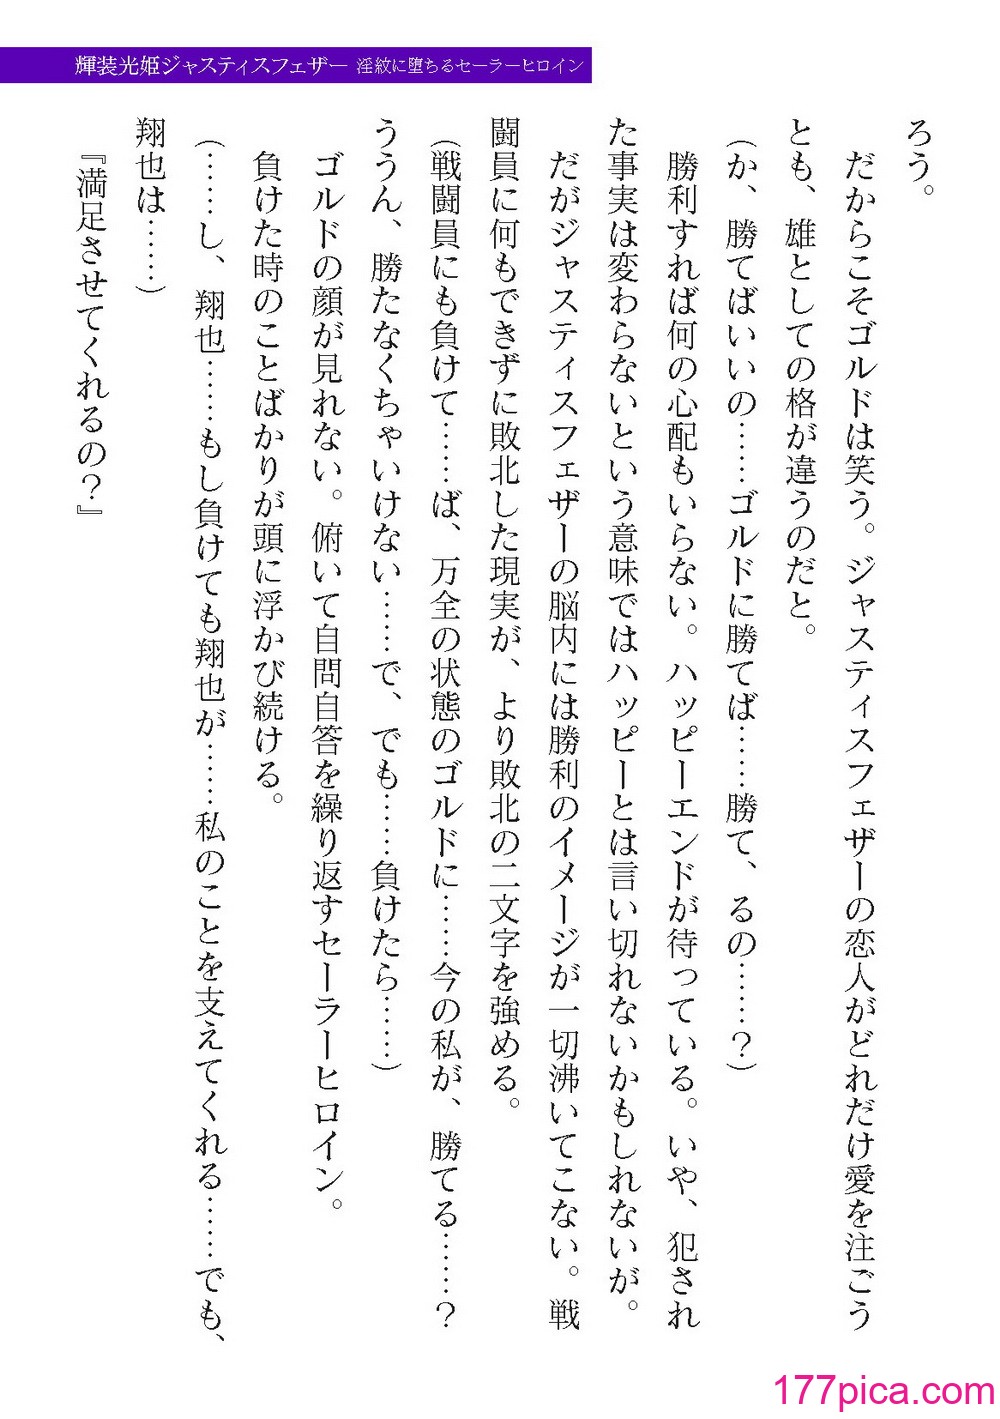 輝装光姫ジャスティスフェザー 淫紋に堕ちるセーラーヒロイン
ろう。
だからこそゴルドは笑う。ジャスティスフェザーの恋人がどれだけ愛を注ごう
とも、雄としての格が違うのだと。
（か、勝てばいいの……ゴルドに勝てば……勝て、るの……？）
勝利すれば何の心配もいらない。ハッピーエンドが待っている。いや、犯され
た事実は変わらないという意味ではハッピーとは言い切れないかもしれないが。
だがジャスティスフェザーの脳内には勝利のイメージが一切沸いてこない。戦
闘員に何もできずに敗北した現実が、より敗北の二文字を強める。
（戦闘員にも負けて……ば、万全の状態のゴルドに……今の私が、勝てる……？
ううん、勝たなくちゃいけない……で、でも……負けたら……）
ゴルドの顔が見れない。俯いて自問自答を繰り返すセーラーヒロイン。
負けた時のことばかりが頭に浮かび続ける。
（……し、翔也……もし負けても翔也が……私のことを支えてくれる……でも、
翔也は……）
『満足させてくれるの？』
177pica.com